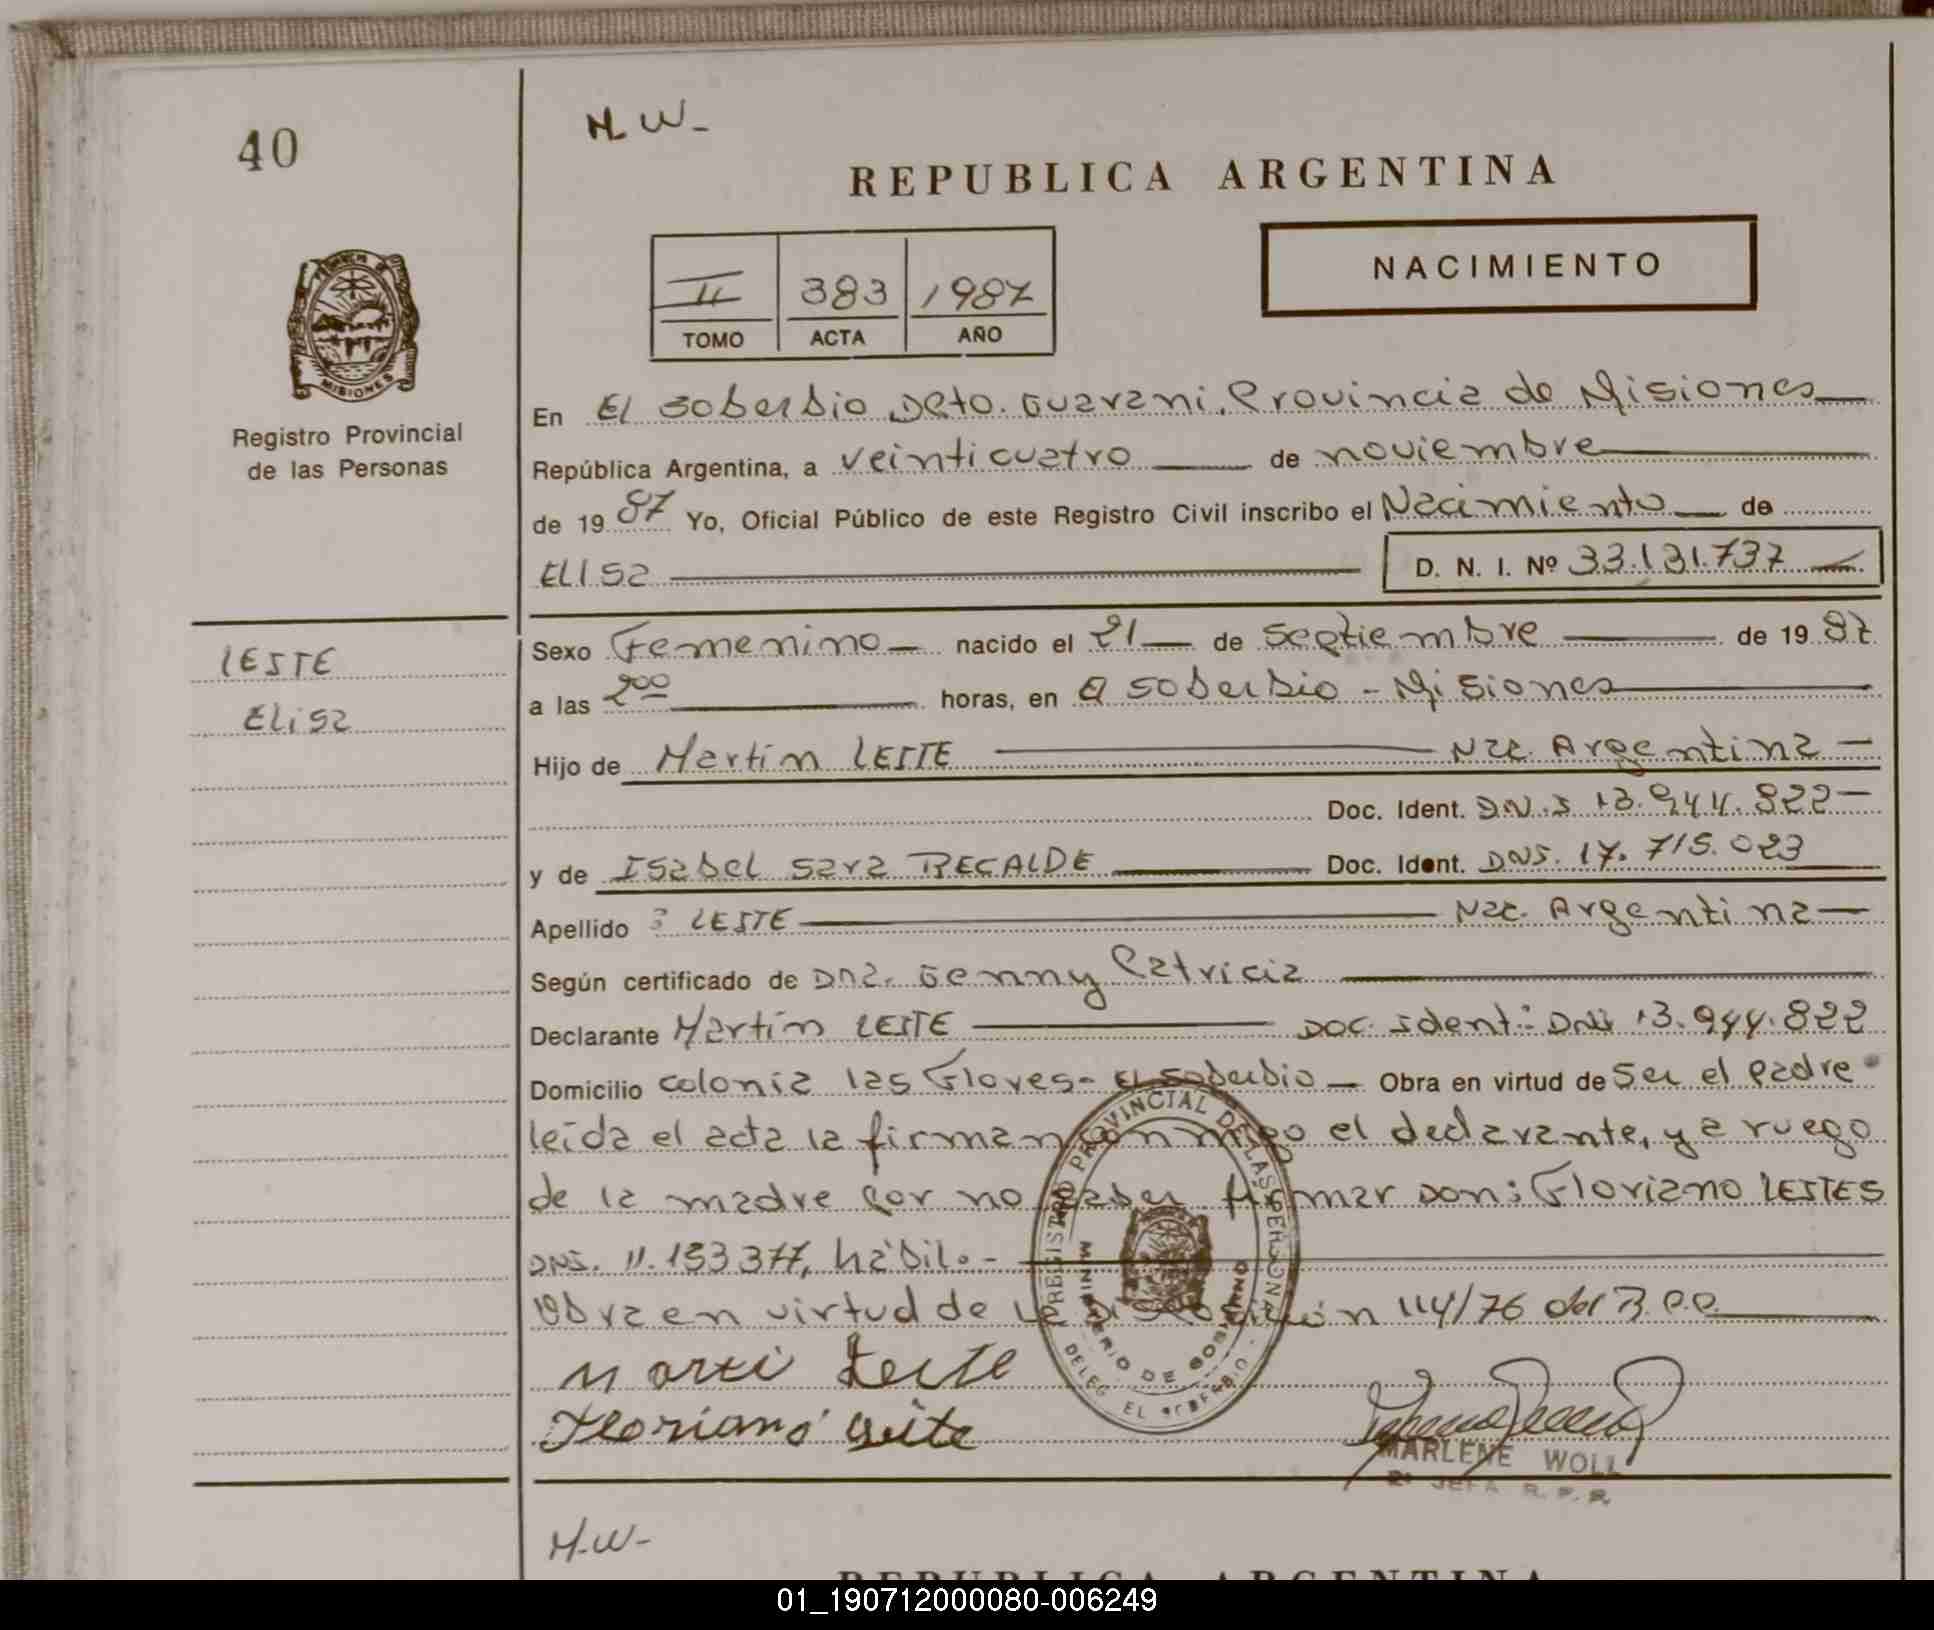 40
M.W-
REPUBLICA ARGENTINA
II 383 1987
TOMO ACTA AÑO
NACIMIENTO
MISIONES
Registro Provincial
de las Personas
En El Soberbio Dpto. Guarani, Provincia de Misiones
República Argentina, a veinticuatro de noviembre
de 19 87 Yo, Oficial Público de este Registro Civil inscribo el Nacimiento de
ELISa D. N. I. Nº 33.131.737
LESTE
ELiSa
Sexo Femenino nacido el 21 de Septiembre de 19 87
a las 200 horas, en El Soberbio - Misiones
Hijo de Martin LESTE Nac. Argentina
Doc. Ident. DNI 13.944.822
y de Isabel Sara RECALDE Doc. Ident. DNI. 17.715.023
Apellido : LESTE Nac. Argentina
Según certificado de Dña. Genny Patricia
Declarante Martin LESTE Doc. Ident: DNI 13.944.822
Domicilio colonia las Flores - El Soberbio Obra en virtud de Ser el padre
leida el acta la firman conmigo el declarante, y a ruego
de la madre por no saber firmar Don: Floriano LESTES
DNI. 11.133377, hábil.-
Obra en virtud de la Disposición 114/76 del R.P.P.
REGISTRO PROVINCIAL DE LAS PERSONAS
MINISTERIO DE GOBIERNO
DELEG. EL SOBERBIO
Marti Leste
Floriano Leite
MARLENE WOLL
2ª JEFA R.P.P.
M.W-
REPUBLICA ARGENTINA
01_190712000080-006249